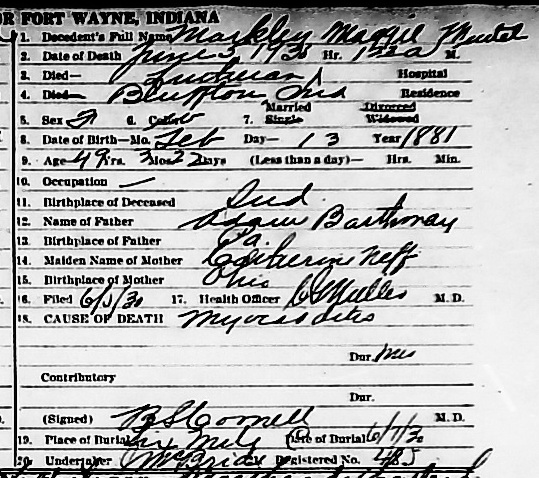 OR FORT WAYNE, INDIANA
1. Decedent's Full Name Markley Maggie
2. Date of Death June 5 1930 Hr. 122a M.
3. Died— Lutheran Hospital
4. Died— Bluffton Ind Residence
5. Sex F 6. Color 7. Married Single Divorced Widowed
8. Date of Birth—Mo. Feb Day— 13 Year 1881
9. Age 49 Yrs. 3 Mos 22 Days (Less than a day)— Hrs. Min.
10. Occupation —
11. Birthplace of Deceased Ind.
12. Name of Father Adam
13. Birthplace of Father Pa.
14. Maiden Name of Mother Catherine Neff
15. Birthplace of Mother Ohio
16. Filed 6/5/30 17. Health Officer M. D.
18. CAUSE OF DEATH Myocarditis
Dur.
Contributory
Dur.
(Signed) B S Cornell M. D.
19. Place of Burial Six Mile Date of Burial 6/7/30
20. Undertaker McBride Registered No. 485